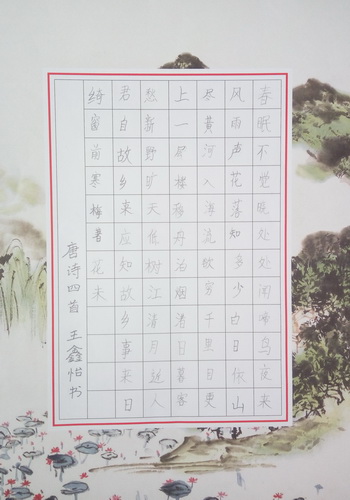 春眠不觉晓处处闻啼鸟夜来
风雨声花落知多少白日依山
尽黄河入海流欲穷千里目更
上一层楼移舟泊烟渚日暮客
愁新野旷天低树江清月近人
君自故乡来应知故乡事来日
绮窗前寒梅著花未
唐诗四首 王鑫怡书